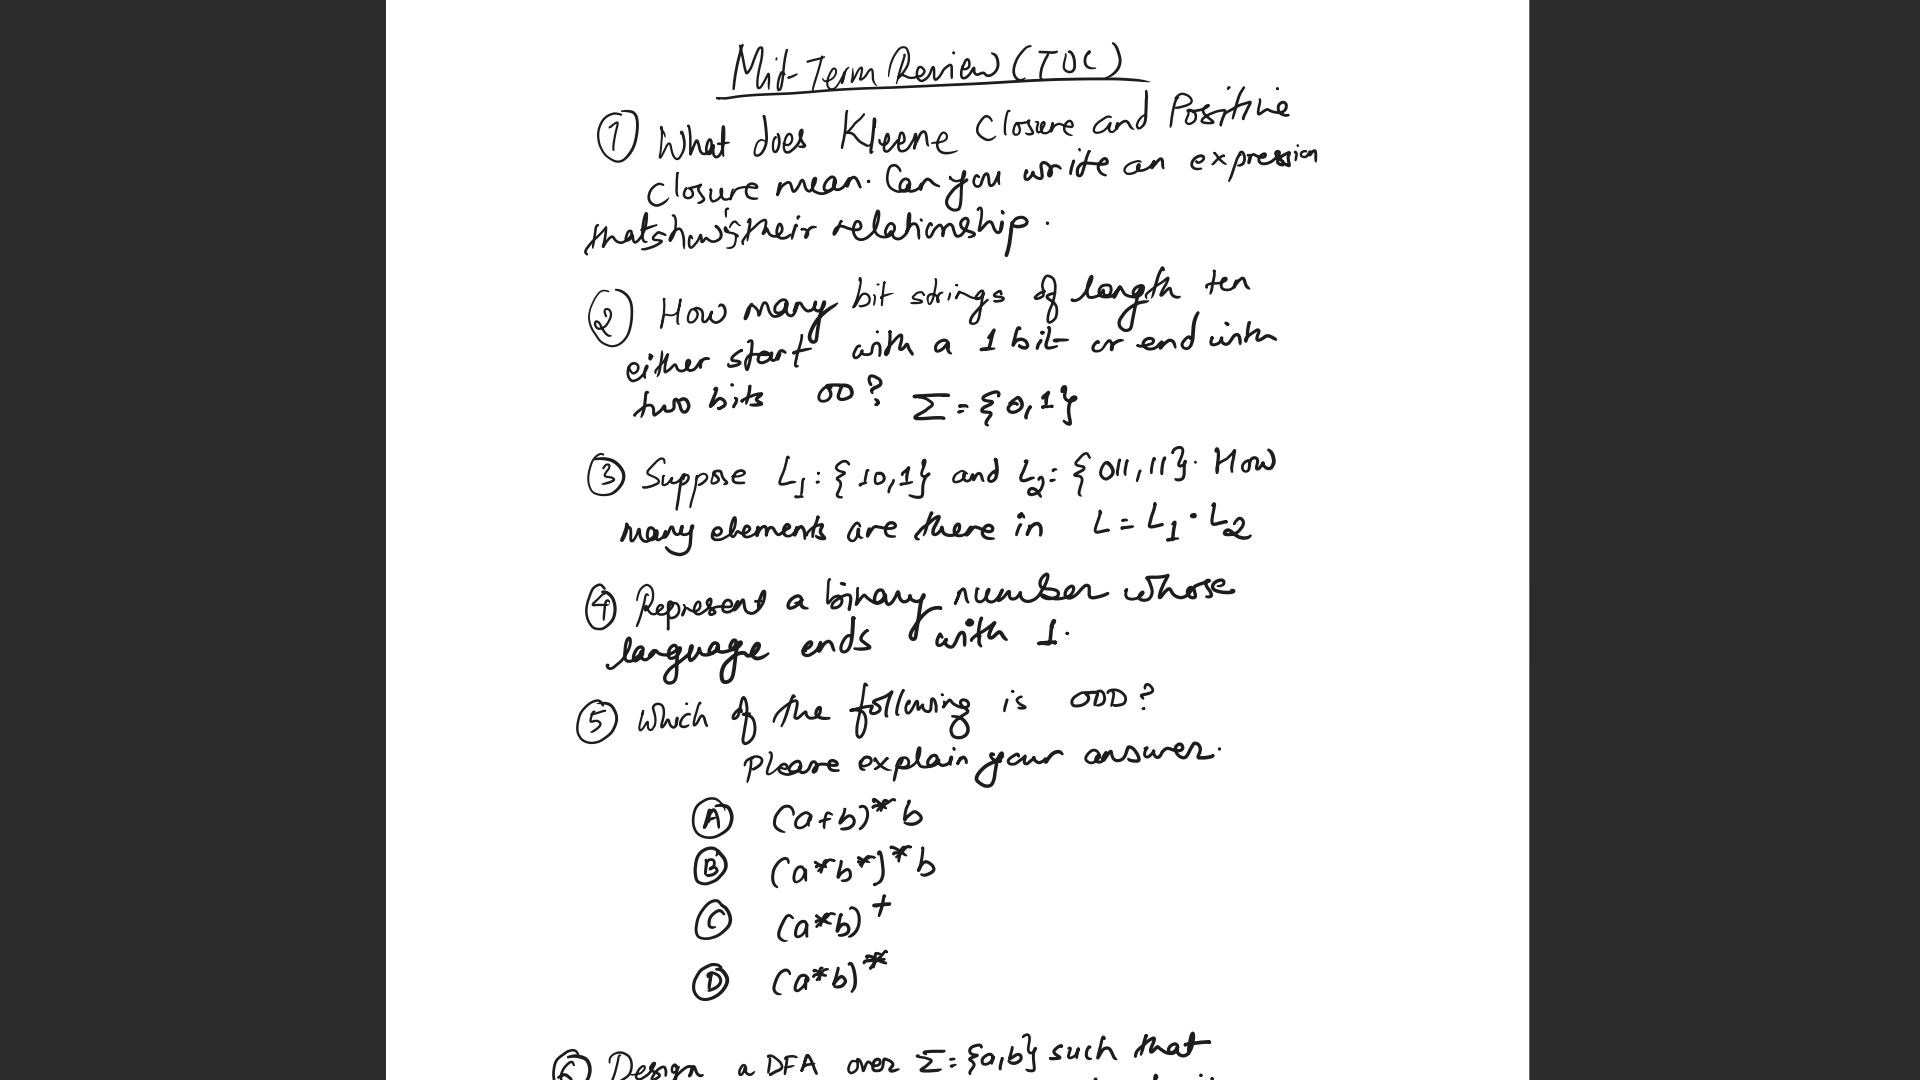 Mid-Term Review (TOC)
① What does Kleene Closure and Positive
Closure mean. Can you write an expression
that shows their relationship.
② How many bit strings of length ten
either start with a 1 bit or end with
two bits 00? Σ = {0,1}
③ Suppose L₁ = {10,1} and L₂ = {011,11}. How
many elements are there in L = L₁ · L₂
④ Represent a binary number whose
language ends with 1.
⑤ Which of the following is ODD?
Please explain your answer.
Ⓐ (a+b)* b
Ⓑ (a*b*)* b
Ⓒ (a*b)⁺
Ⓓ (a*b)*
⑥ Design a DFA over Σ = {a,b} such that